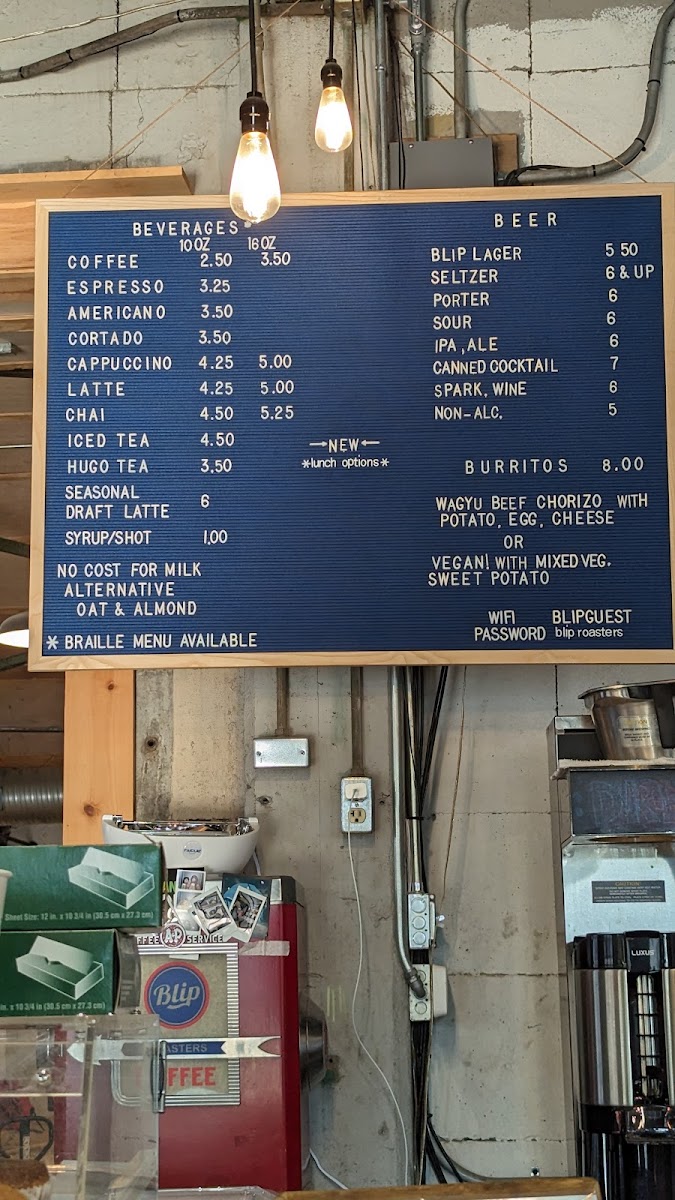 BEVERAGES
10 OZ 16 OZ
COFFEE 2.50 3.50
ESPRESSO 3.25
AMERICANO 3.50
CORTADO 3.50
CAPPUCCINO 4.25 5.00
LATTE 4.25 5.00
CHAI 4.50 5.25
ICED TEA 4.50
HUGO TEA 3.50
SEASONAL
DRAFT LATTE 6
SYRUP/SHOT 1.00
NO COST FOR MILK
ALTERNATIVE
OAT & ALMOND
* BRAILLE MENU AVAILABLE
→NEW←
*lunch options*
BEER
BLIP LAGER 5 50
SELTZER 6 & UP
PORTER 6
SOUR 6
IPA, ALE 6
CANNED COCKTAIL 7
SPARK. WINE 6
NON-ALC. 5
BURRITOS 8.00
WAGYU BEEF CHORIZO WITH
POTATO, EGG, CHEESE
OR
VEGAN! WITH MIXED VEG.
SWEET POTATO
WIFI BLIPGUEST
PASSWORD blip roasters
Sheet Size: 12 in. x 10 3/4 in (30.5 cm x 27.3 cm)
in. x 10 3/4 in (30.5 cm x 27.3 cm)
FFEE A·P SERVICE
Blip
ASTERS
FFEE
CAUTION
LUXUS